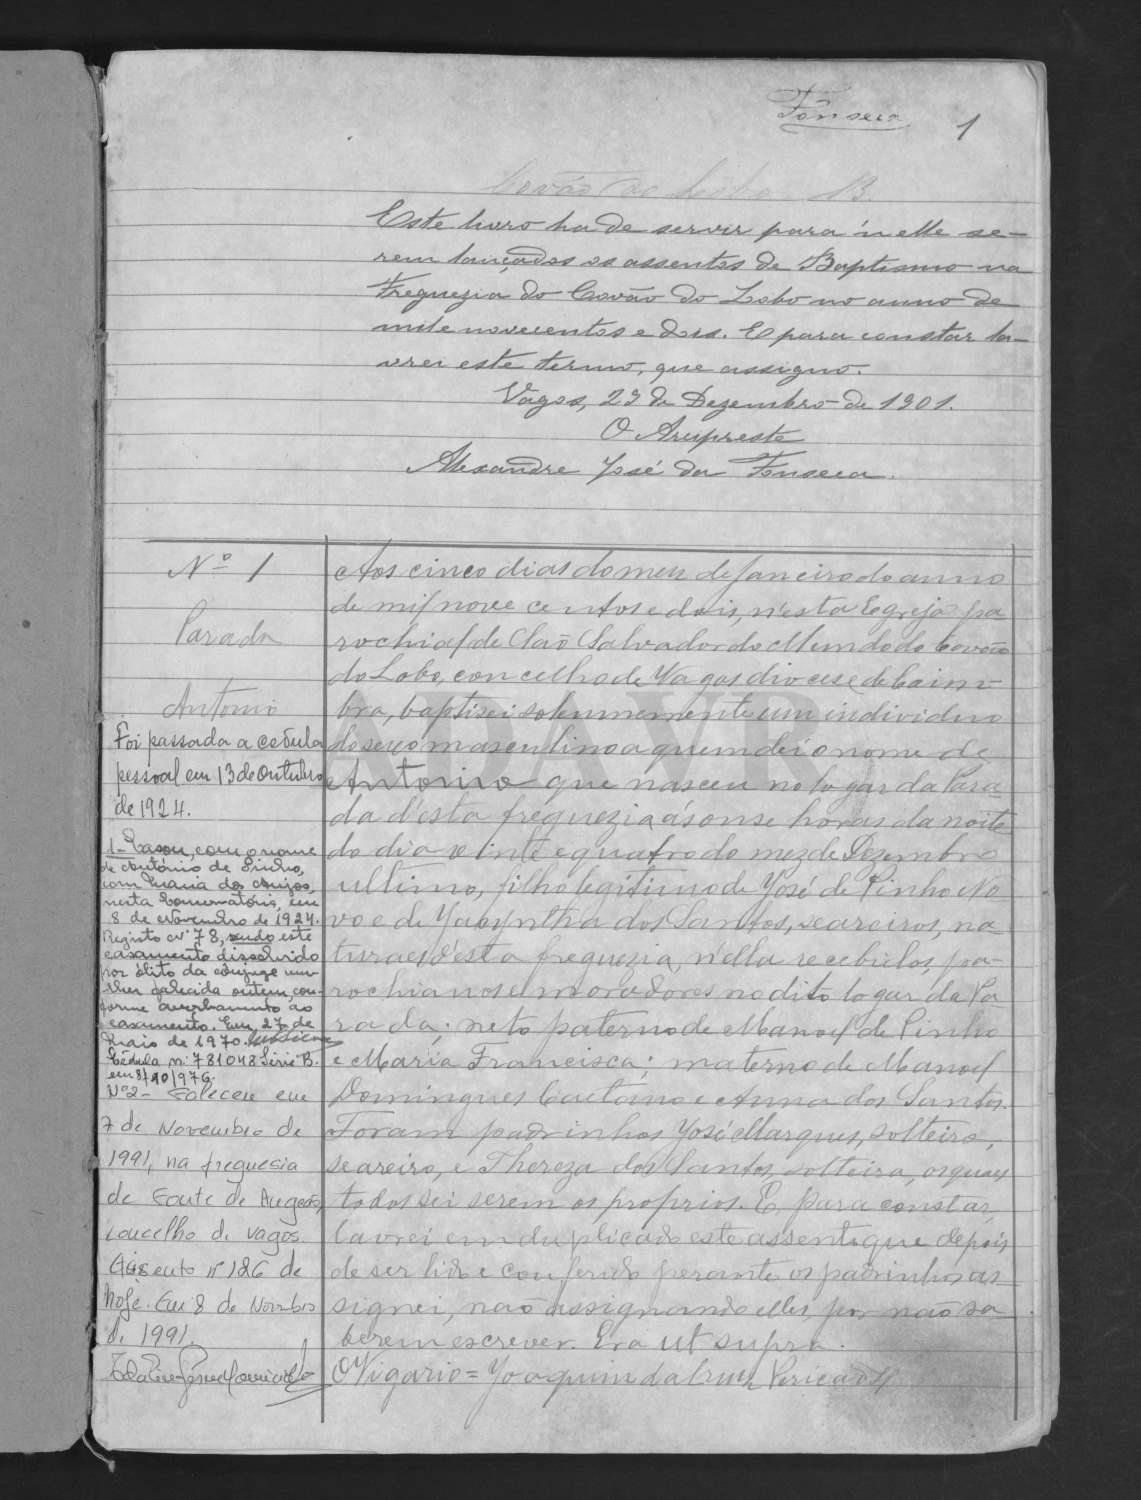 Fonseca
1
Covão do Lobo B.
Este livro ha de servir para n'elle se-
rem lançados os assentos de Baptismo na
Freguezia do Covão do Lobo no anno de
mile novecentos e dois. E para constar la-
vrei este termo, que assigno.
Vagos, 29 de Dezembro de 1901.
O Arcipreste
Alexandre José da Fonseca.
Nº 1
Parada
Antonio
Foi passada a cedula
pessoal em 13 de Outubro
de 1924.
1- Casou, com o nome
de António de Pinho,
com Maria dos Anjos,
nesta Conservatória, em
8 de Novembro de 1924.
Registo nº 78, sendo este
casamento dissolvido
por óbito da cônjuge mu-
lher falecida ontem, con-
forme averbamento ao
casamento. Em, 27 de
Maio de 1970.
Cédula nº 781048 Série B.
em 8/10/976.
Nº2- Faleceu em
7 de Novembro de
1991, na freguesia
de Fonte de Angeão,
concelho de Vagos.
Assento nº 126 de
hoje. Em 8 de Novembro
de 1991.
Aos cinco dias do mez de Janeiro do anno
de mil nove centos e dois, n'esta Egreja pa-
rochial de São Salvador do Mundo do Covão
do Lobo, concelho de Vagos diocese de Coim-
bra, baptisei solemnemente um individuo
do sexo masculino a quem dei o nome de
Antonio que nasceu no logar da Para-
da d'esta freguezia ás onse horas da noite
do dia vinte e quatro do mez de Dezembro
ultimo, filho legitimo de José de Pinho No
vo e de Jacyntha dos Santos, seareiros, na-
turaes d'esta freguezia, n'ella recebidos, pa-
rochianos e moradores no dito logar da Pa
rada; neto paterno de Manoel de Pinho
e Maria Francisca; materno de Manoel
Domingues Caetano e Anna dos Santos.
Foram padrinhos José Marques, solteiro,
seareiro, e Thereza dos Santos, solteira, os quaes
todos sei serem os proprios. E para constar,
lavrei em duplicado este assento que depois
de ser lido e conferido perante os padrinhos as
signei, não assignando elles, por não sa
berem escrever. Era ut supra.
O Vigario = Joaquim da Cruz Pericão